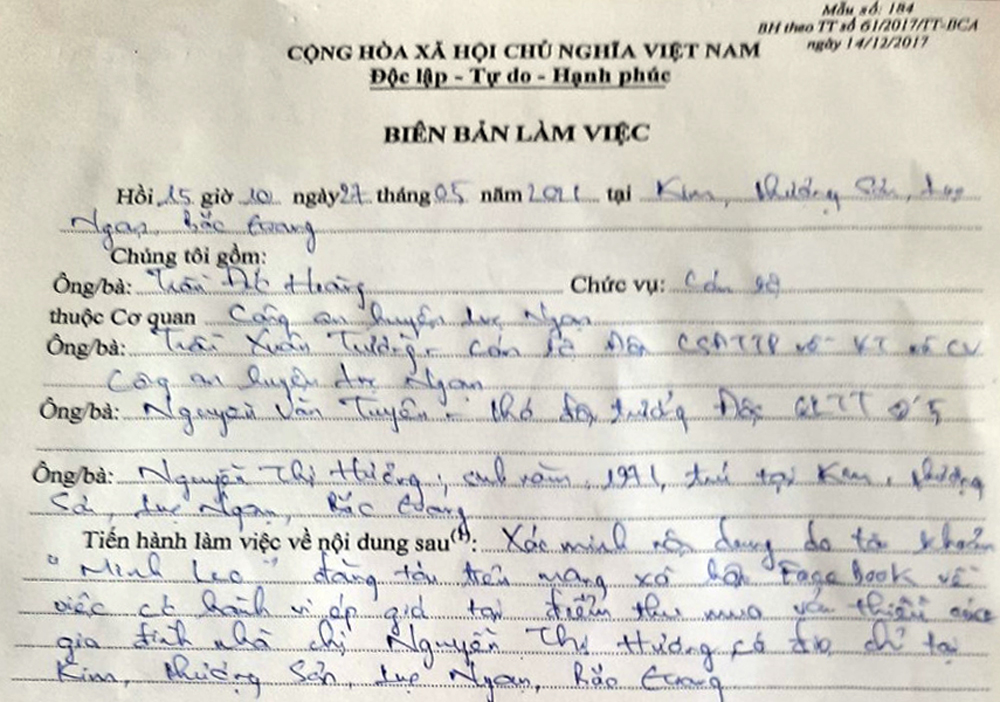 Mẫu số: 184
BH theo TT số 61/2017/TT-BCA
ngày 14/12/2017
CỘNG HÒA XÃ HỘI CHỦ NGHĨA VIỆT NAM
Độc lập - Tự do - Hạnh phúc
BIÊN BẢN LÀM VIỆC
Hồi 15 giờ 10 ngày 27 tháng 05 năm 2021 tại Kim, Phượng Sơn, Lục
Ngạn, Bắc Giang
Chúng tôi gồm:
Ông/bà: Trần Hoàng Chức vụ: Cán bộ
thuộc Cơ quan Công an huyện Lục Ngạn
Ông/bà: Trần Xuân Trường - Cán bộ Đội
Công an huyện Lục Ngạn
Ông/bà: Nguyễn Văn Tuyên - Phó đội trưởng Đội QLTT số 5
Ông/bà: Nguyễn Thị Hường, sinh năm 1971, trú tại Kim, Phượng
Sơn, Lục Ngạn, Bắc Giang
Tiến hành làm việc về nội dung sau(1): Xác minh nội dung do tài khoản
"Minh Leo" đăng tải trên mạng xã hội FaceBook về
việc có hành vi ép giá tại điểm thu mua vải thiều của
gia đình nhà chị Nguyễn Thị Hường có địa chỉ tại
Kim, Phượng Sơn, Lục Ngạn, Bắc Giang